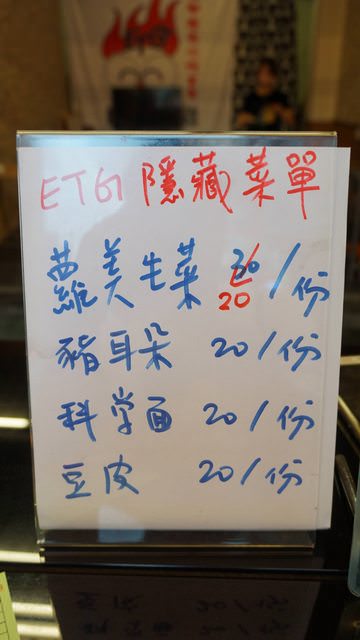 ETG 隱藏菜單
蘿美生菜 30/份
20
豬耳朵 20/份
科学面 20/份
豆皮 20/份